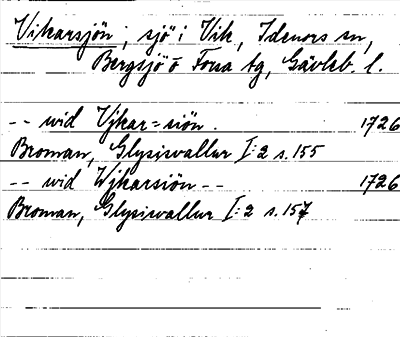 Vikarsjön, sjö i Vik, Idenors sn,
Bergsjö o Forsa tg, Gävleb. l.
-- wid Vjkar=siön. 1726
Broman, Glysisvallur I:2 s. 155
-- wid Wjkarsiön -- 1726
Broman, Glysisvallur I:2 s. 157